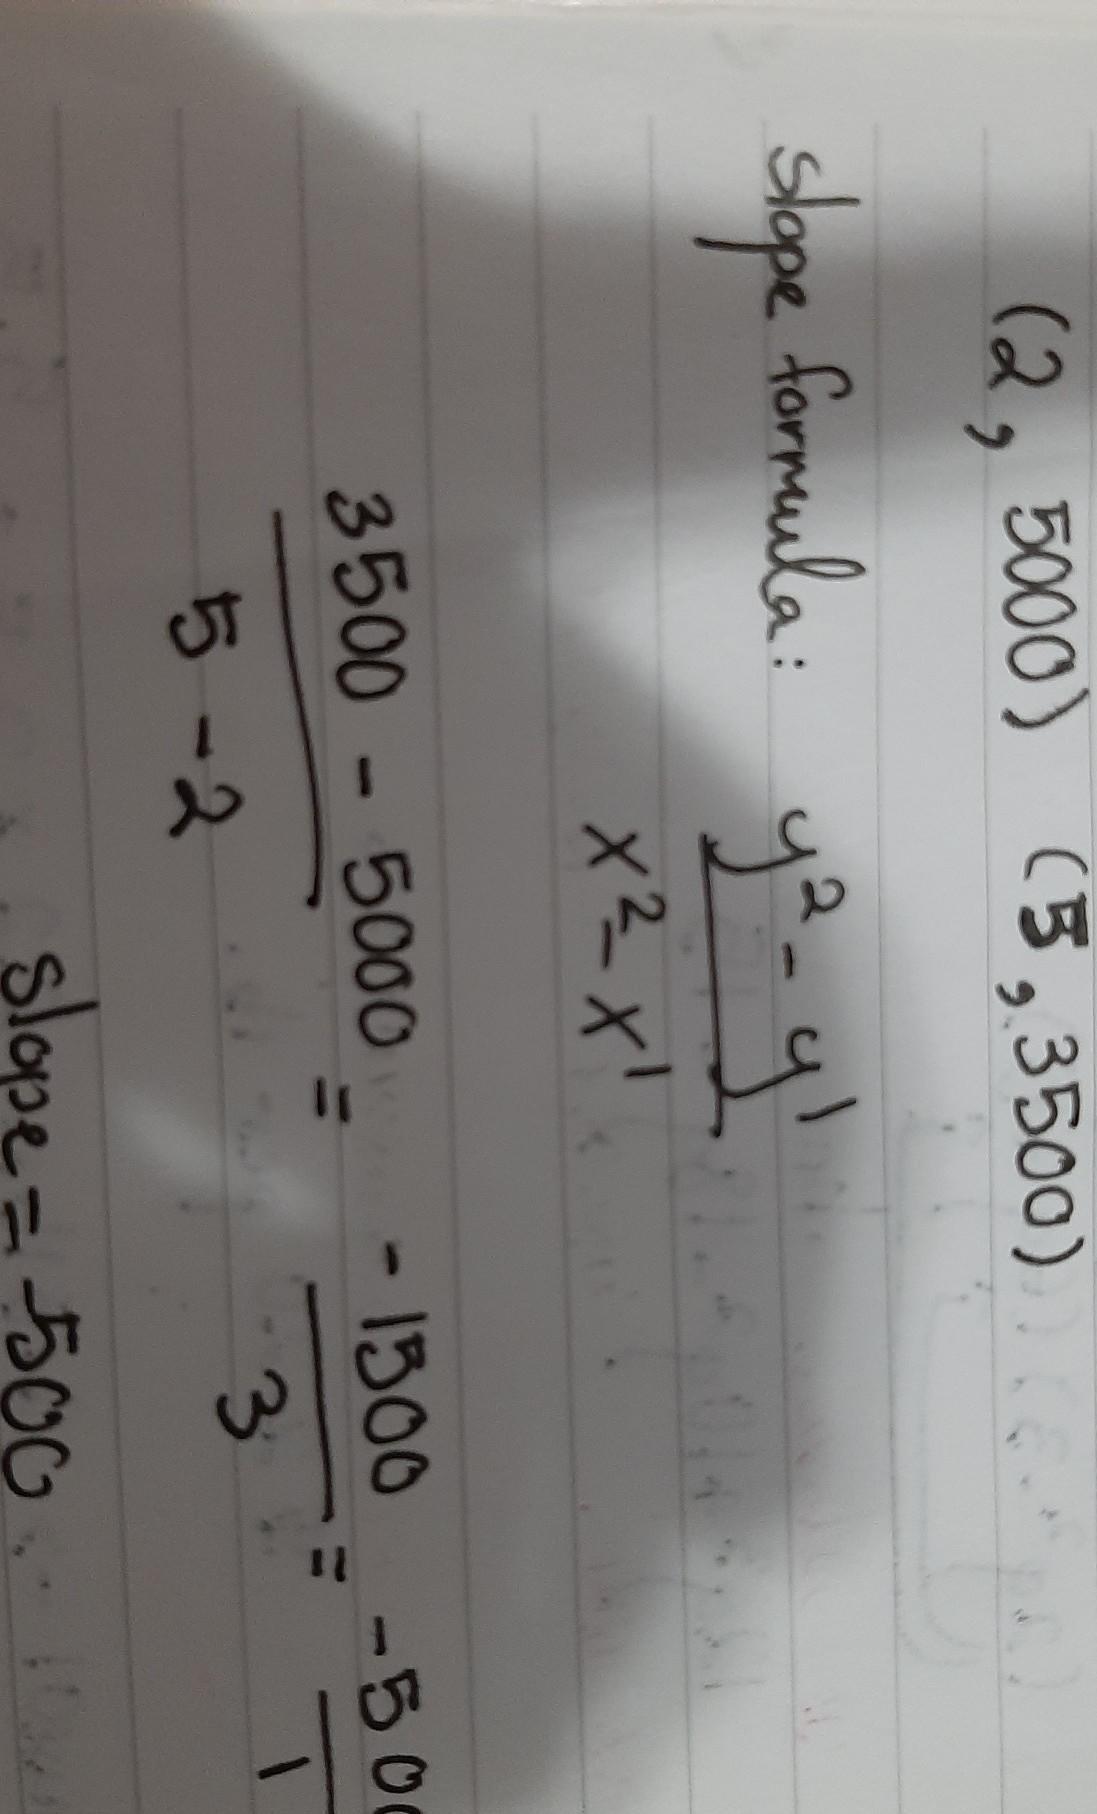 (2, 5000) (5, 3500)
slope formula: y² - y¹
x² - x¹
3500 - 5000 = -1500 = -500
5 - 2 3 1
slope = -500